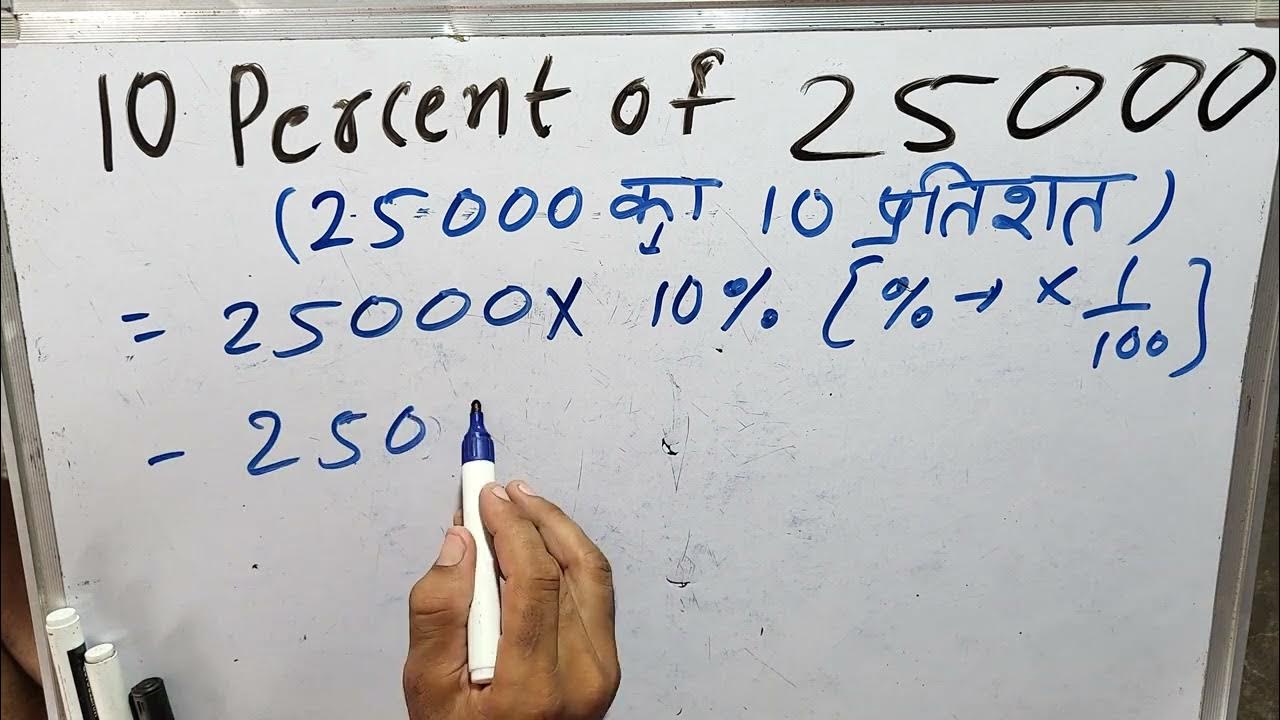 10 Percent of 25000
(25000 का 10 प्रतिशत)
= 25000 x 10% [% → x 1/100]
- 250